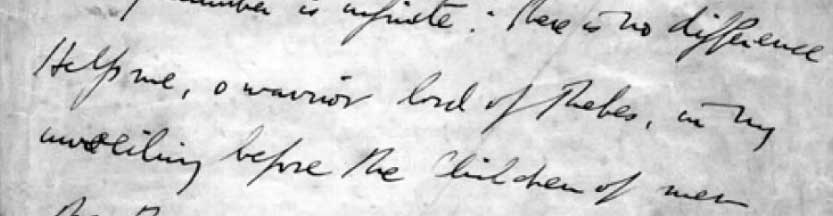 number is infinite: there is no difference
Help me, o warrior lord of Thebes, in my
unveiling before the Children of men